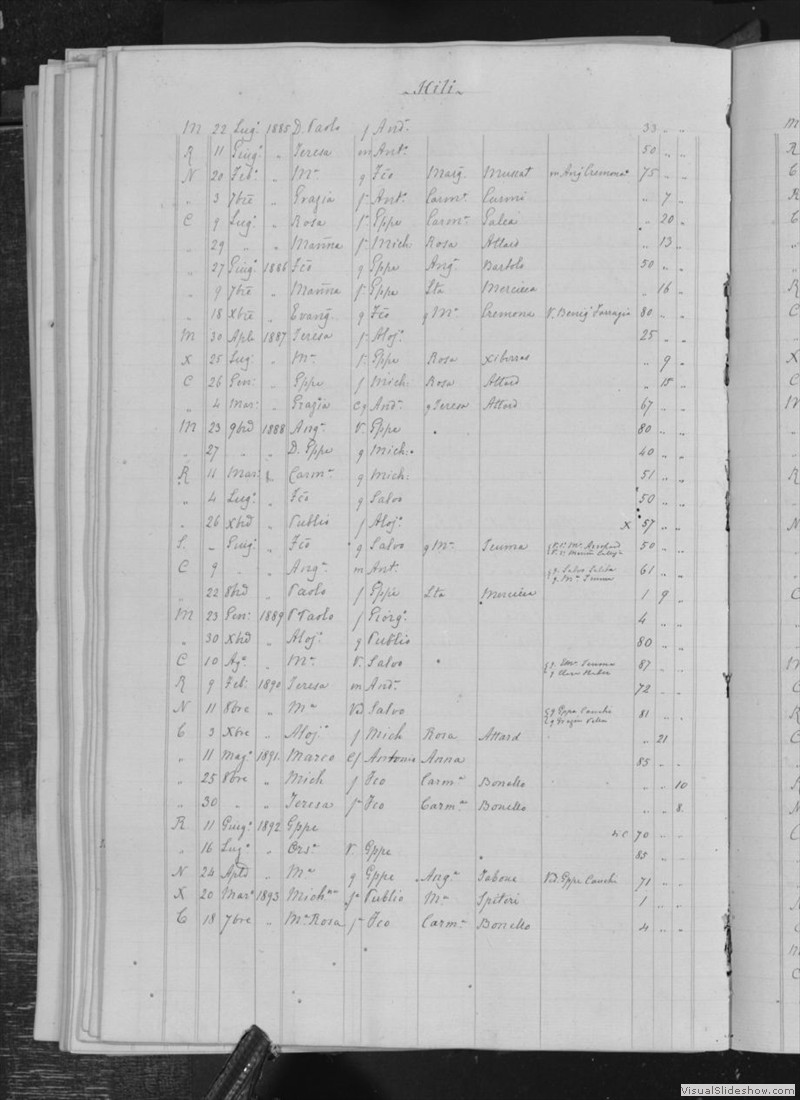 Hili
M 22 Lug. 1885 D. Paolo f And. 33 " "
R 11 Giug. " Teresa m Ant. 50 " "
N 20 Feb. " Ma. g Fco Marg. Muscat m Ang Cremona 75 " "
" 3 7bre " Grazia f. Ant. Carm. Curmi " 7 "
C 9 Lug. " Rosa f. Eppe Carm. Galea " 20 "
" 29 " " Marina f. Mich Rosa Attard " 13 "
" 27 Giug. 1886 Fco g Eppe Ang. Bartolo 50 " "
" 9 7bre " Marina f. Eppe Sta Mercieca " 16 "
" 18 Xbre " Evang. g Fco g Ma. Cremona V. Benig Farrugia 80 " "
M 30 Aple 1887 Teresa f. Aloj. 25 " "
X 25 Lug. " Ma. f. Eppe Rosa Xiberras " 9 "
C 26 Gen. " Eppe f Mich. Rosa Attard " 15 "
" 4 Mar. " Grazia Cg And. g Teresa Attard 67 " "
M 23 9bre 1888 Ang. V. Eppe 80 " "
" 27 " " D. Eppe g Mich. 40 " "
R 11 Mar. " Carm. g Mich. 51 " "
" 4 Lug. " Fco g Salvo 50 " "
" 26 Xbre " Publio f Aloj. X 57 " "
S. " Giug. " Fco g Salvo g Ma. Teuma 50 " "
C 9 " " Ang. m Ant. g. Salvo g. Ma. Teuma 61 " "
" 22 8bre " Paolo f Eppe Sta Mercieca 1 9 "
M 23 Gen. 1889 P Paolo f Giorg. 4 " "
" 30 Xbre " Aloj. g Publio 80 " "
C 10 Ag. " Ma. V. Salvo g. Ma. Teuma 87 " "
R 9 Feb. 1890 Teresa m And. 72 " "
N 11 8bre " Ma Vd Salvo g Eppe Cauchi g Grazia 81 " "
C 3 Xbre " Aloj. f Mich Rosa Attard " 21 "
" 11 Mag. 1891. Marco Cf Antonio Anna 85 " "
" 25 8bre " Mich f Fco Carma Bonello " " 10
" 30 " " Teresa fa Fco Carma Bonello " " 8.
R 11 Giug. 1892 Eppe nc 70 " "
" 16 Lug. " Orsa V. Eppe 85 " "
N 24 Aple " Ma g Eppe Anga Tabone Vd. Eppe Cauchi 71 " "
X 20 Mar. 1893 Mich fa Publio Ma Spiteri 1 " "
C 18 7bre " Ma Rosa fa Fco Carm. Bonello 4 " "
VisualSlideshow.com